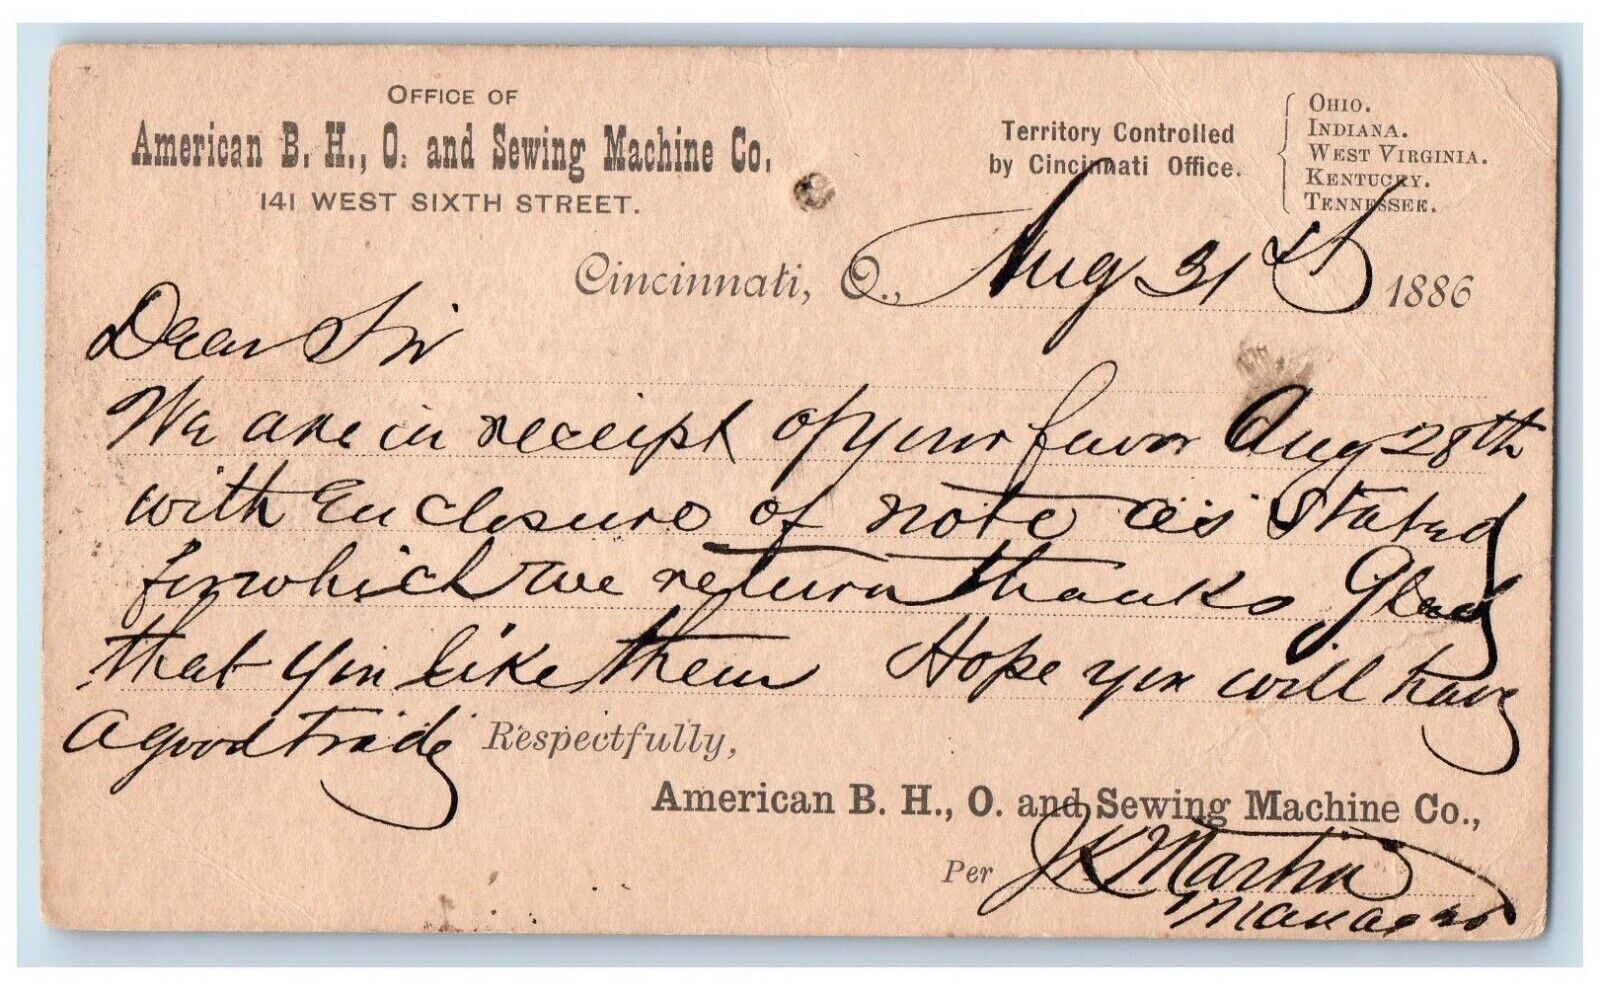 OFFICE OF
American B. H., O. and Sewing Machine Co.
141 WEST SIXTH STREET.
Territory Controlled
by Cincinnati Office.
OHIO.
INDIANA.
WEST VIRGINIA.
KENTUCKY.
TENNESSEE.
Cincinnati, O., Aug 31st 1886
Dear Sir
We are in receipt of your favor Aug 28th
with Enclosure of note as stated
for which we return thanks Glad
that you like them Hope you will have
a good trade Respectfully,
American B. H., O. and Sewing Machine Co.,
Per JK Martin
Manager